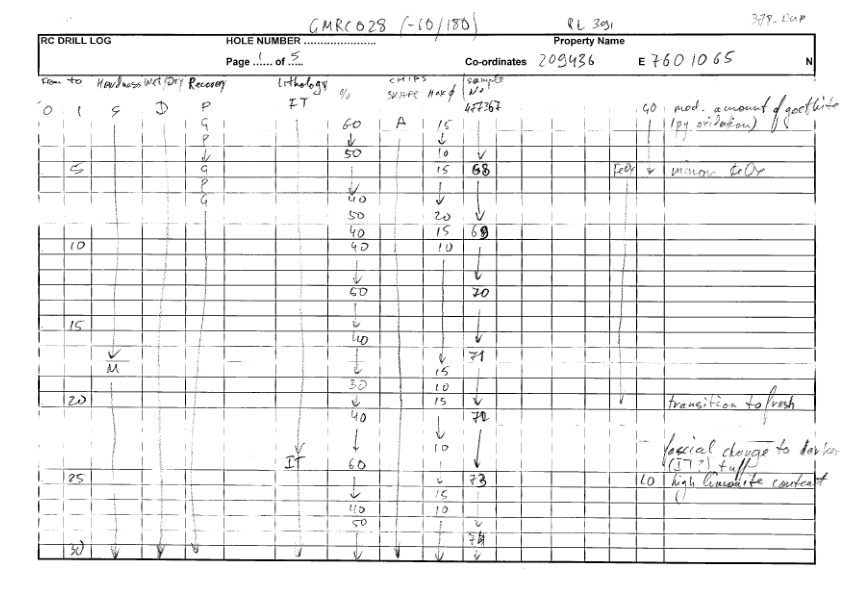 GMRC028 (-60/180) RL 391 378-DUP
RC DRILL LOG HOLE NUMBER ........................ Property Name
Page 1 of 5 Co-ordinates 209436 E 7601065 N
From to Hardness Wet/Dry Recovery Lithology % CHIPS SHAPE Max φ Sample No.
0 1 S D P FT 477367 GO mod. amount of goethite
G 60 A 15 (py oxidation)
P ↓ ↓
↓ 50 10 ↓
5 G 15 68 FeOx ↓ minor FeOx
P ↓ ↓
G 40 ↓
50 20 ↓
40 15 69
10 40 10
↓ ↓
50 70
15 ↓
40 ↓
↓ ↓ ↓ 71
M ↓ 15
30 10
20 ↓ 15 ↓ ↓ transition to fresh
40 72
↓
↓ ↓ 10 facial change to darker
IT 60 ↓ (IT?) tuff
25 ↓ 73 LO high limonite content
↓ 15
40 10
50 ↓
74
30 ↓ ↓ ↓ ↓ ↓ ↓ ↓ ↓